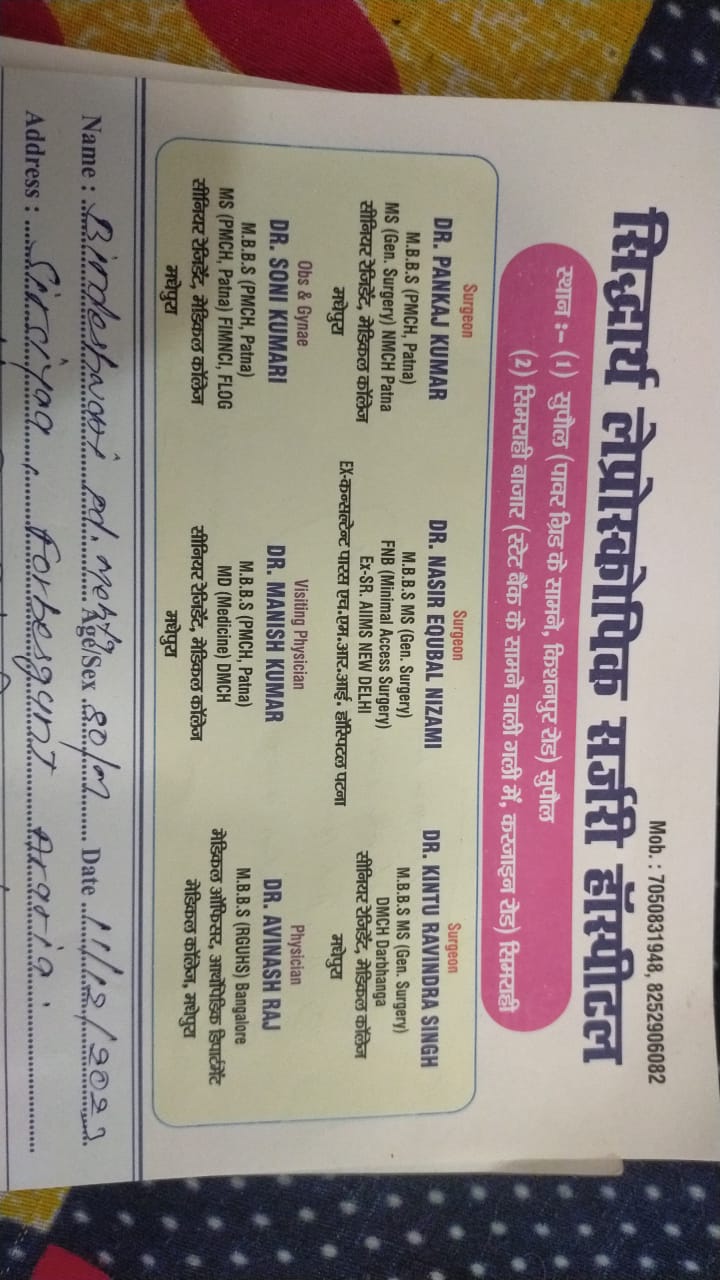 Mob. : 7050831948, 8252906082
सिद्धार्थ लेप्रोस्कोपिक सर्जरी हॉस्पीटल
स्थान :- (1) सुपौल (पावर ग्रिड के सामने, किशनपुर रोड) सुपौल
(2) सिमराही बाजार (स्टेट बैंक के सामने वाली गली में, करजाइन रोड) सिमराही
Surgeon
DR. PANKAJ KUMAR
M.B.B.S (PMCH, Patna)
MS (Gen. Surgery) NMCH Patna
सीनियर रेजिडेंट, मेडिकल कॉलेज
मधेपुरा
Surgeon
DR. NASIR EQUBAL NIZAMI
M.B.B.S MS (Gen. Surgery)
FNB (Minimal Access Surgery)
Ex-SR. AIIMS NEW DELHI
EX-कन्सल्टेन्ट पारस एच.एम.आर.आई. हॉस्पिटल पटना
Surgeon
DR. KINTU RAVINDRA SINGH
M.B.B.S MS (Gen. Surgery)
DMCH Darbhanga
सीनियर रेजिडेंट, मेडिकल कॉलेज
मधेपुरा
Obs & Gynae
DR. SONI KUMARI
M.B.B.S (PMCH, Patna)
MS (PMCH, Patna) FIMNCI, FLOG
सीनियर रेजिडेंट, मेडिकल कॉलेज
मधेपुरा
Visiting Physician
DR. MANISH KUMAR
M.B.B.S (PMCH, Patna)
MD (Medicine) DMCH
सीनियर रेजिडेंट, मेडिकल कॉलेज
मधेपुरा
Physician
DR. AVINASH RAJ
M.B.B.S (RGUHS) Bangalore
मेडिकल ऑफिसर, आर्थोपेडिक डिपार्टमेंट
मेडिकल कॉलेज, मधेपुरा
Name : Birdeshwari pd. mehta Age/Sex Date 11/12/2023
Address : Sirsiyaa, Forbesganj Araria.